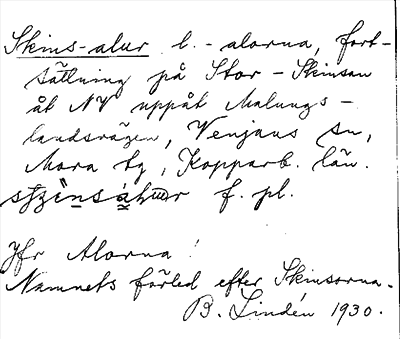 Skins-alur l. -alorna, fort-
sättning på Stor-Skinsan
åt NV uppåt Malungs-
landsvägen, Venjans sn,
Mora tg, Kopparb. län.
f. pl.
Jfr Alorna!
Namnets förled efter Skinsorna.
B. Lindén 1930.